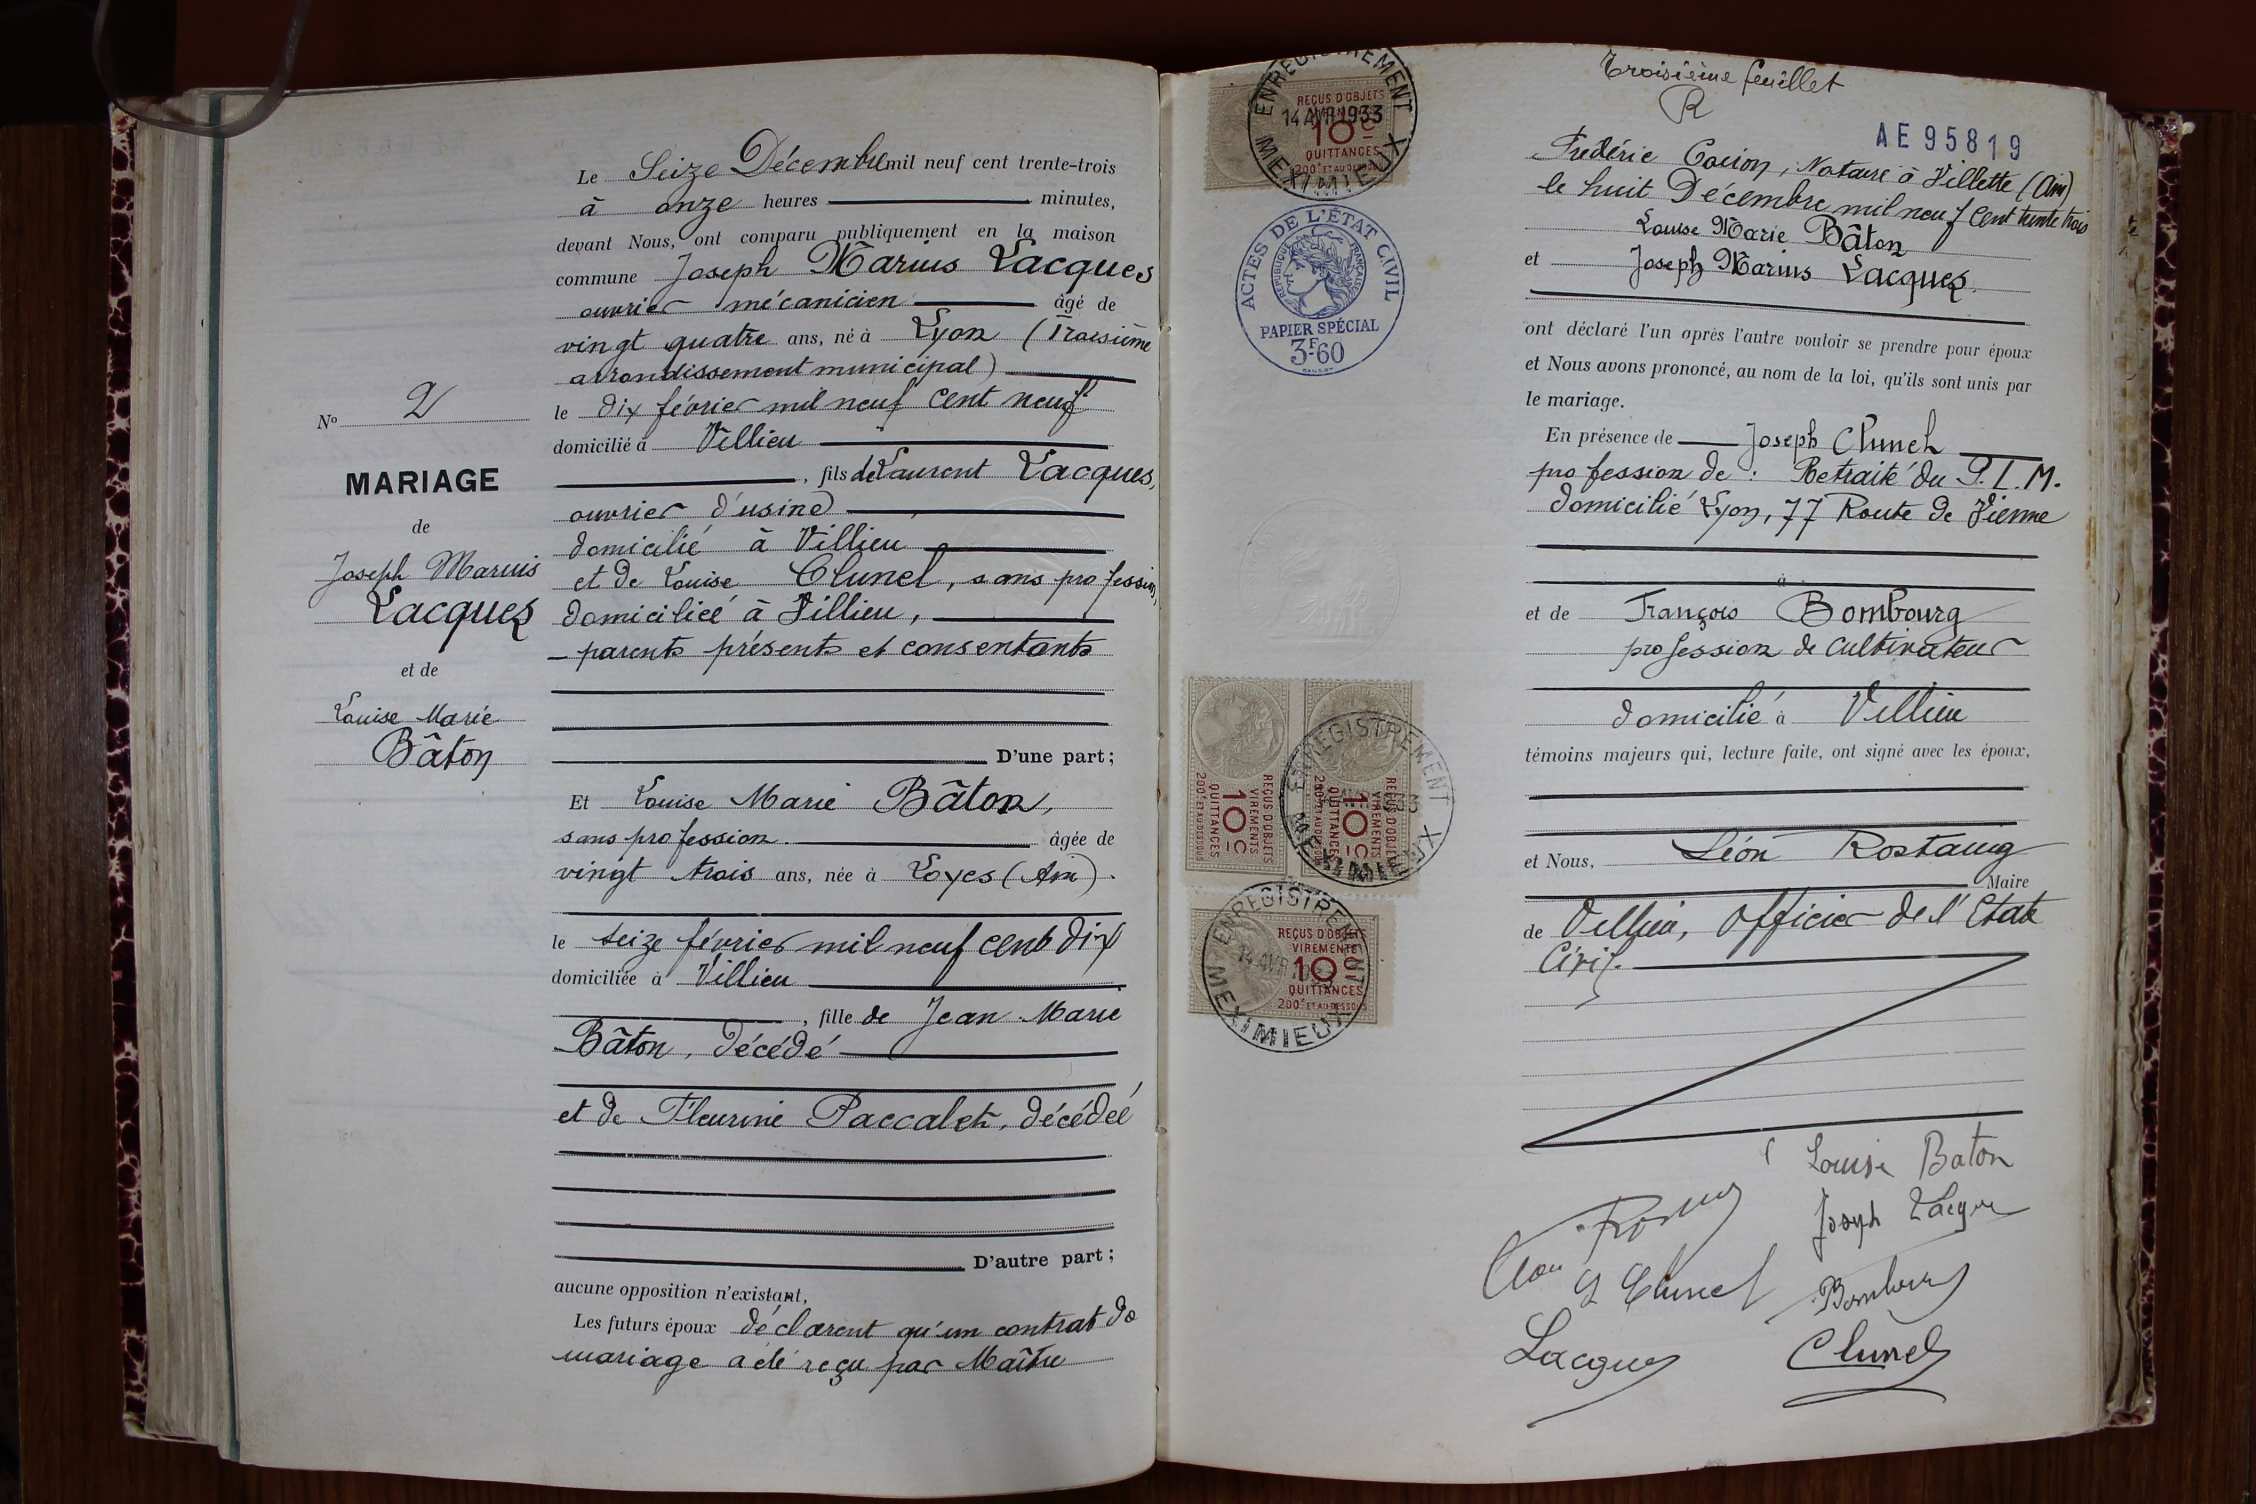 Le Seize Décembre mil neuf cent trente-trois
à onze heures minutes,
devant Nous, ont comparu publiquement en la maison
commune Joseph Marius Lacques
ouvrier mécanicien âgé de
vingt quatre ans, né à Lyon (Troisième
arrondissement municipal)
le dix février mil neuf cent neuf
domicilié à Villieu
, fils de Laurent Lacques,
ouvrier d'usine
domicilié à Villieu
et de Louise Clunel, sans profession,
domiciliée à Villieu,
parents présents et consentants
D'une part;
Et Louise Marie Bâton,
sans profession. âgée de
vingt trois ans, née à Loyes (Ain).
le seize février mil neuf cent dix
domiciliée à Villieu
, fille de Jean Marie
Bâton, décédé
et de Fleurine Paccalet, décédée
D'autre part;
aucune opposition n'existant,
Les futurs époux déclarent qu'un contrat de
mariage a été reçu par Maître
No 2
MARIAGE
de
Joseph Marius
Lacques
et de
Louise Marie
Bâton
ENREGISTREMENT
REÇUS D'OBJETS
14 AVR 1933
10c
QUITTANCES
200F ET AU DESSOUS
MEXIMIEUX
ACTES DE L'ÉTAT CIVIL
RÉPUBLIQUE FRANÇAISE
PAPIER SPÉCIAL
3F-60
REÇUS D'OBJETS
VIREMENTS
10c
QUITTANCES
200F ET AU DESSOUS
REÇUS D'OBJETS
VIREMENTS
10c
QUITTANCES
ENREGISTREMENT
MEXIMIEUX
ENREGISTREMENT
REÇUS D'OBJETS
VIREMENTS
14 AVR
10
QUITTANCES
200F ET AU DESSOUS
MEXIMIEUX
Troisième feuillet
R
AE 95819
Frédéric , Notaire à Villette (Ain)
le huit Décembre mil neuf cent trente trois
Louise Marie Bâton
et Joseph Marius Lacques.
ont déclaré l'un après l'autre vouloir se prendre pour époux
et Nous avons prononcé, au nom de la loi, qu'ils sont unis par
le mariage.
En présence de Joseph Clunel
profession de : Retraité du P.L.M.
domicilié Lyon, 77 Route de Vienne
à
et de François Bombourg
profession de cultivateur
domicilié à Villieu
témoins majeurs qui, lecture faite, ont signé avec les époux,
et Nous, Léon Rostaing
Maire
de Villieu, Officier de l'Etat
Civil.
Louise Baton
Joseph Lacques
L Clunel
Bombourg
Lacques
Clunel